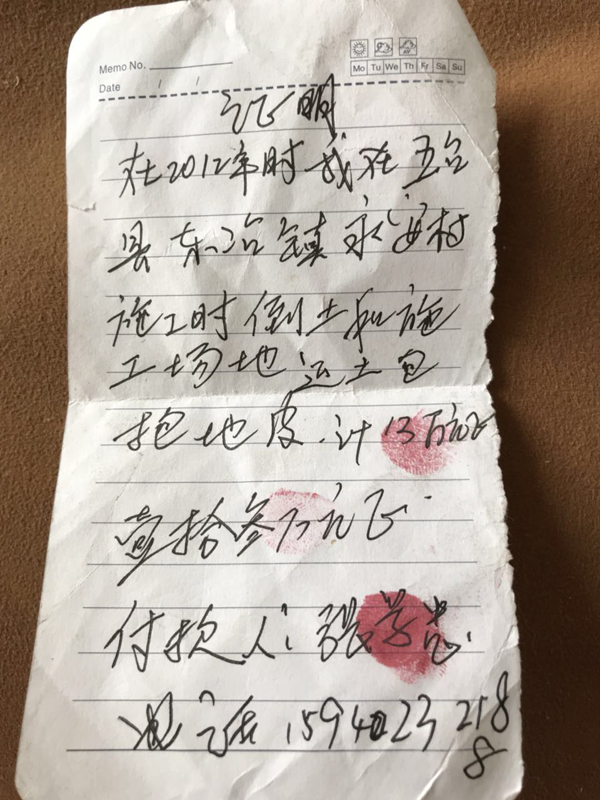 Memo No.
Mo Tu We Th Fr Sa Su
Date / /
证明
在2012年时我在五台
县东冶镇永安村
施工时倒土和施
工场地运土包
括地皮.计13万元正
壹拾叁万元正.
付款人:张学忠.
电话 159